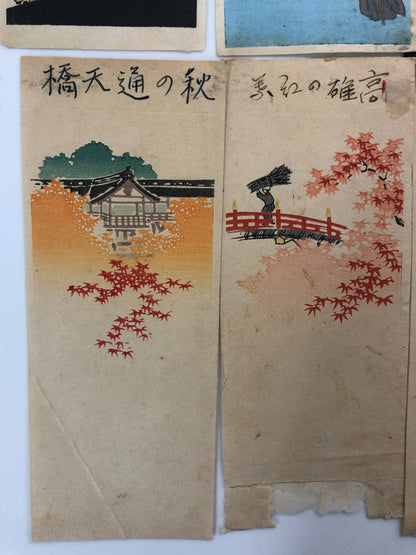 秋の通天橋
高雄の紅葉